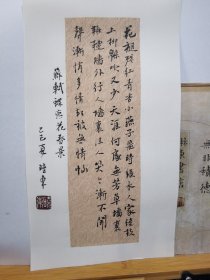 花褪殘紅青杏小燕子飛時綠水人家繞枝
上柳緜吹又少天涯何處無芳草墻裏
鞦韆墻外行人墻裏佳人笑〻漸不聞
聲漸悄多情却被無情惱
蘇軾蝶恋花春景
乙巳夏